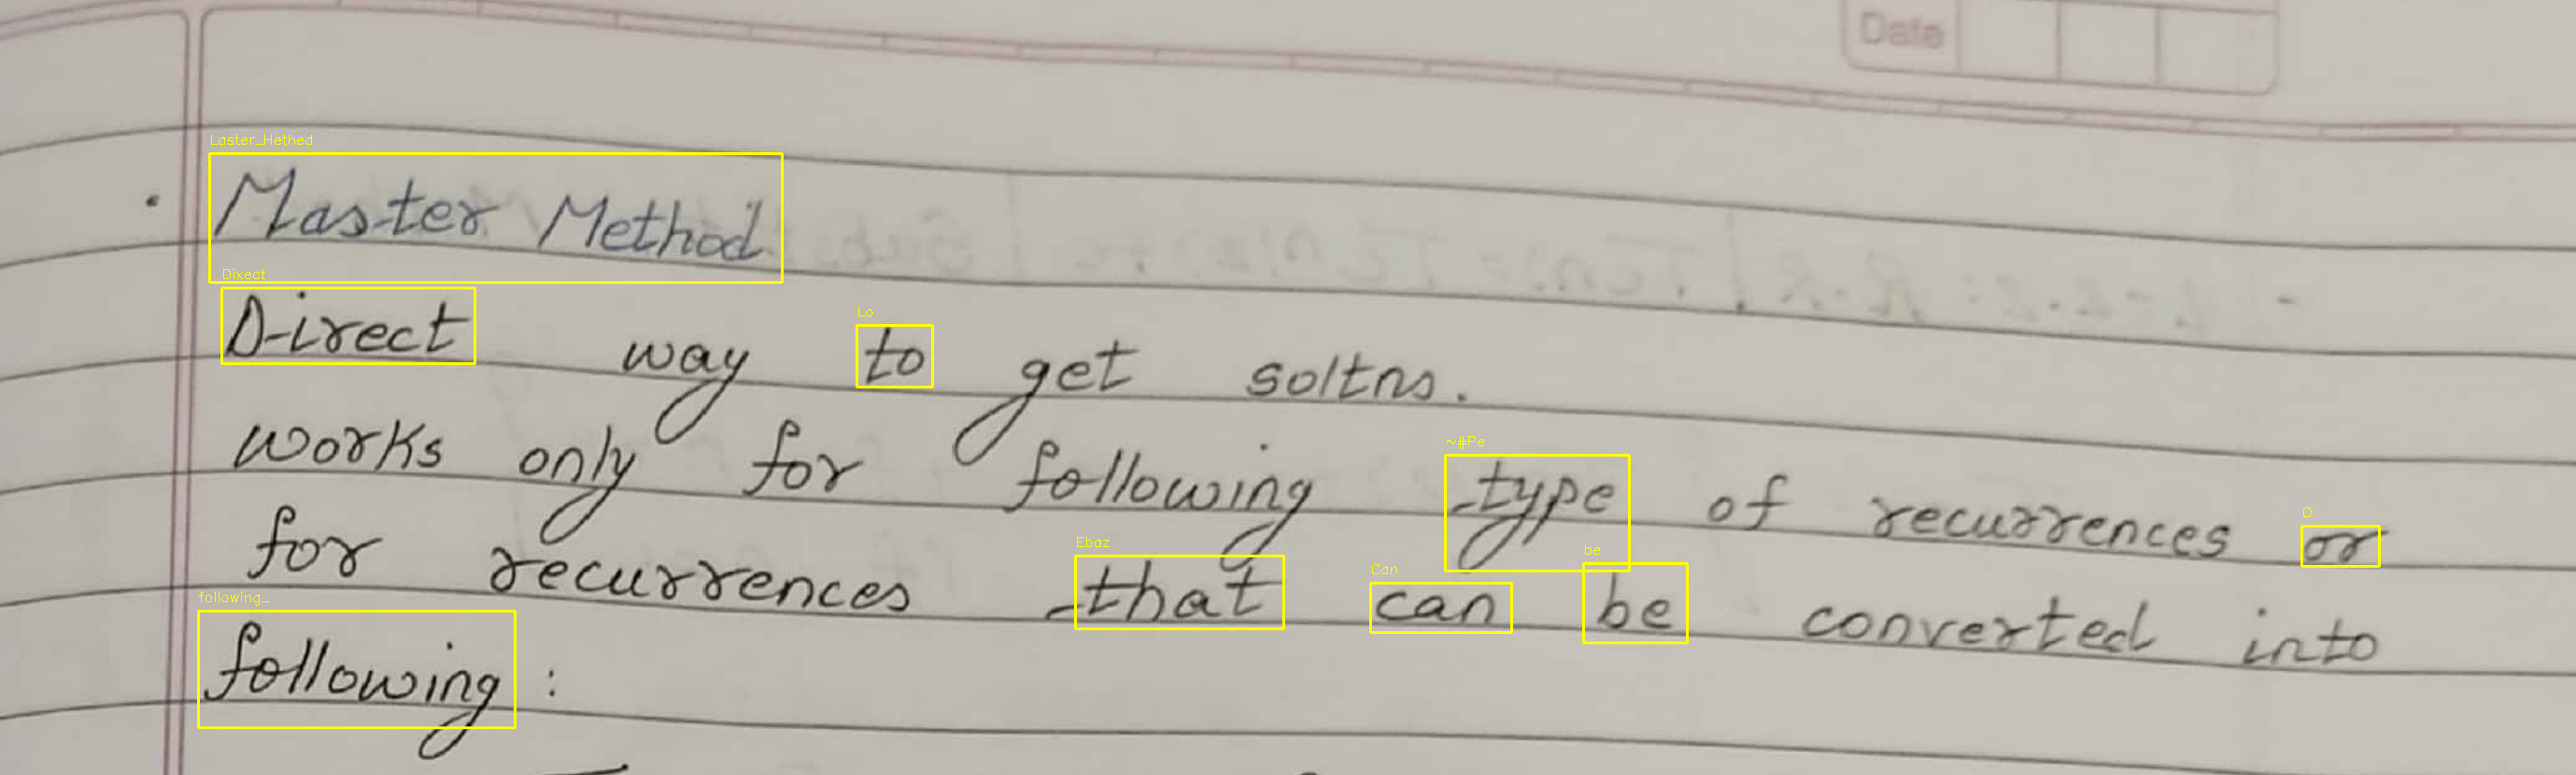 Date
Laster_Hethed
· Master Method
Dixect
Lo
Direct way to get soltns.
~#Pe
works only for following type of recurrences or
O
Ebaz
Can
be
for recurrences that can be converted into
following_
following :